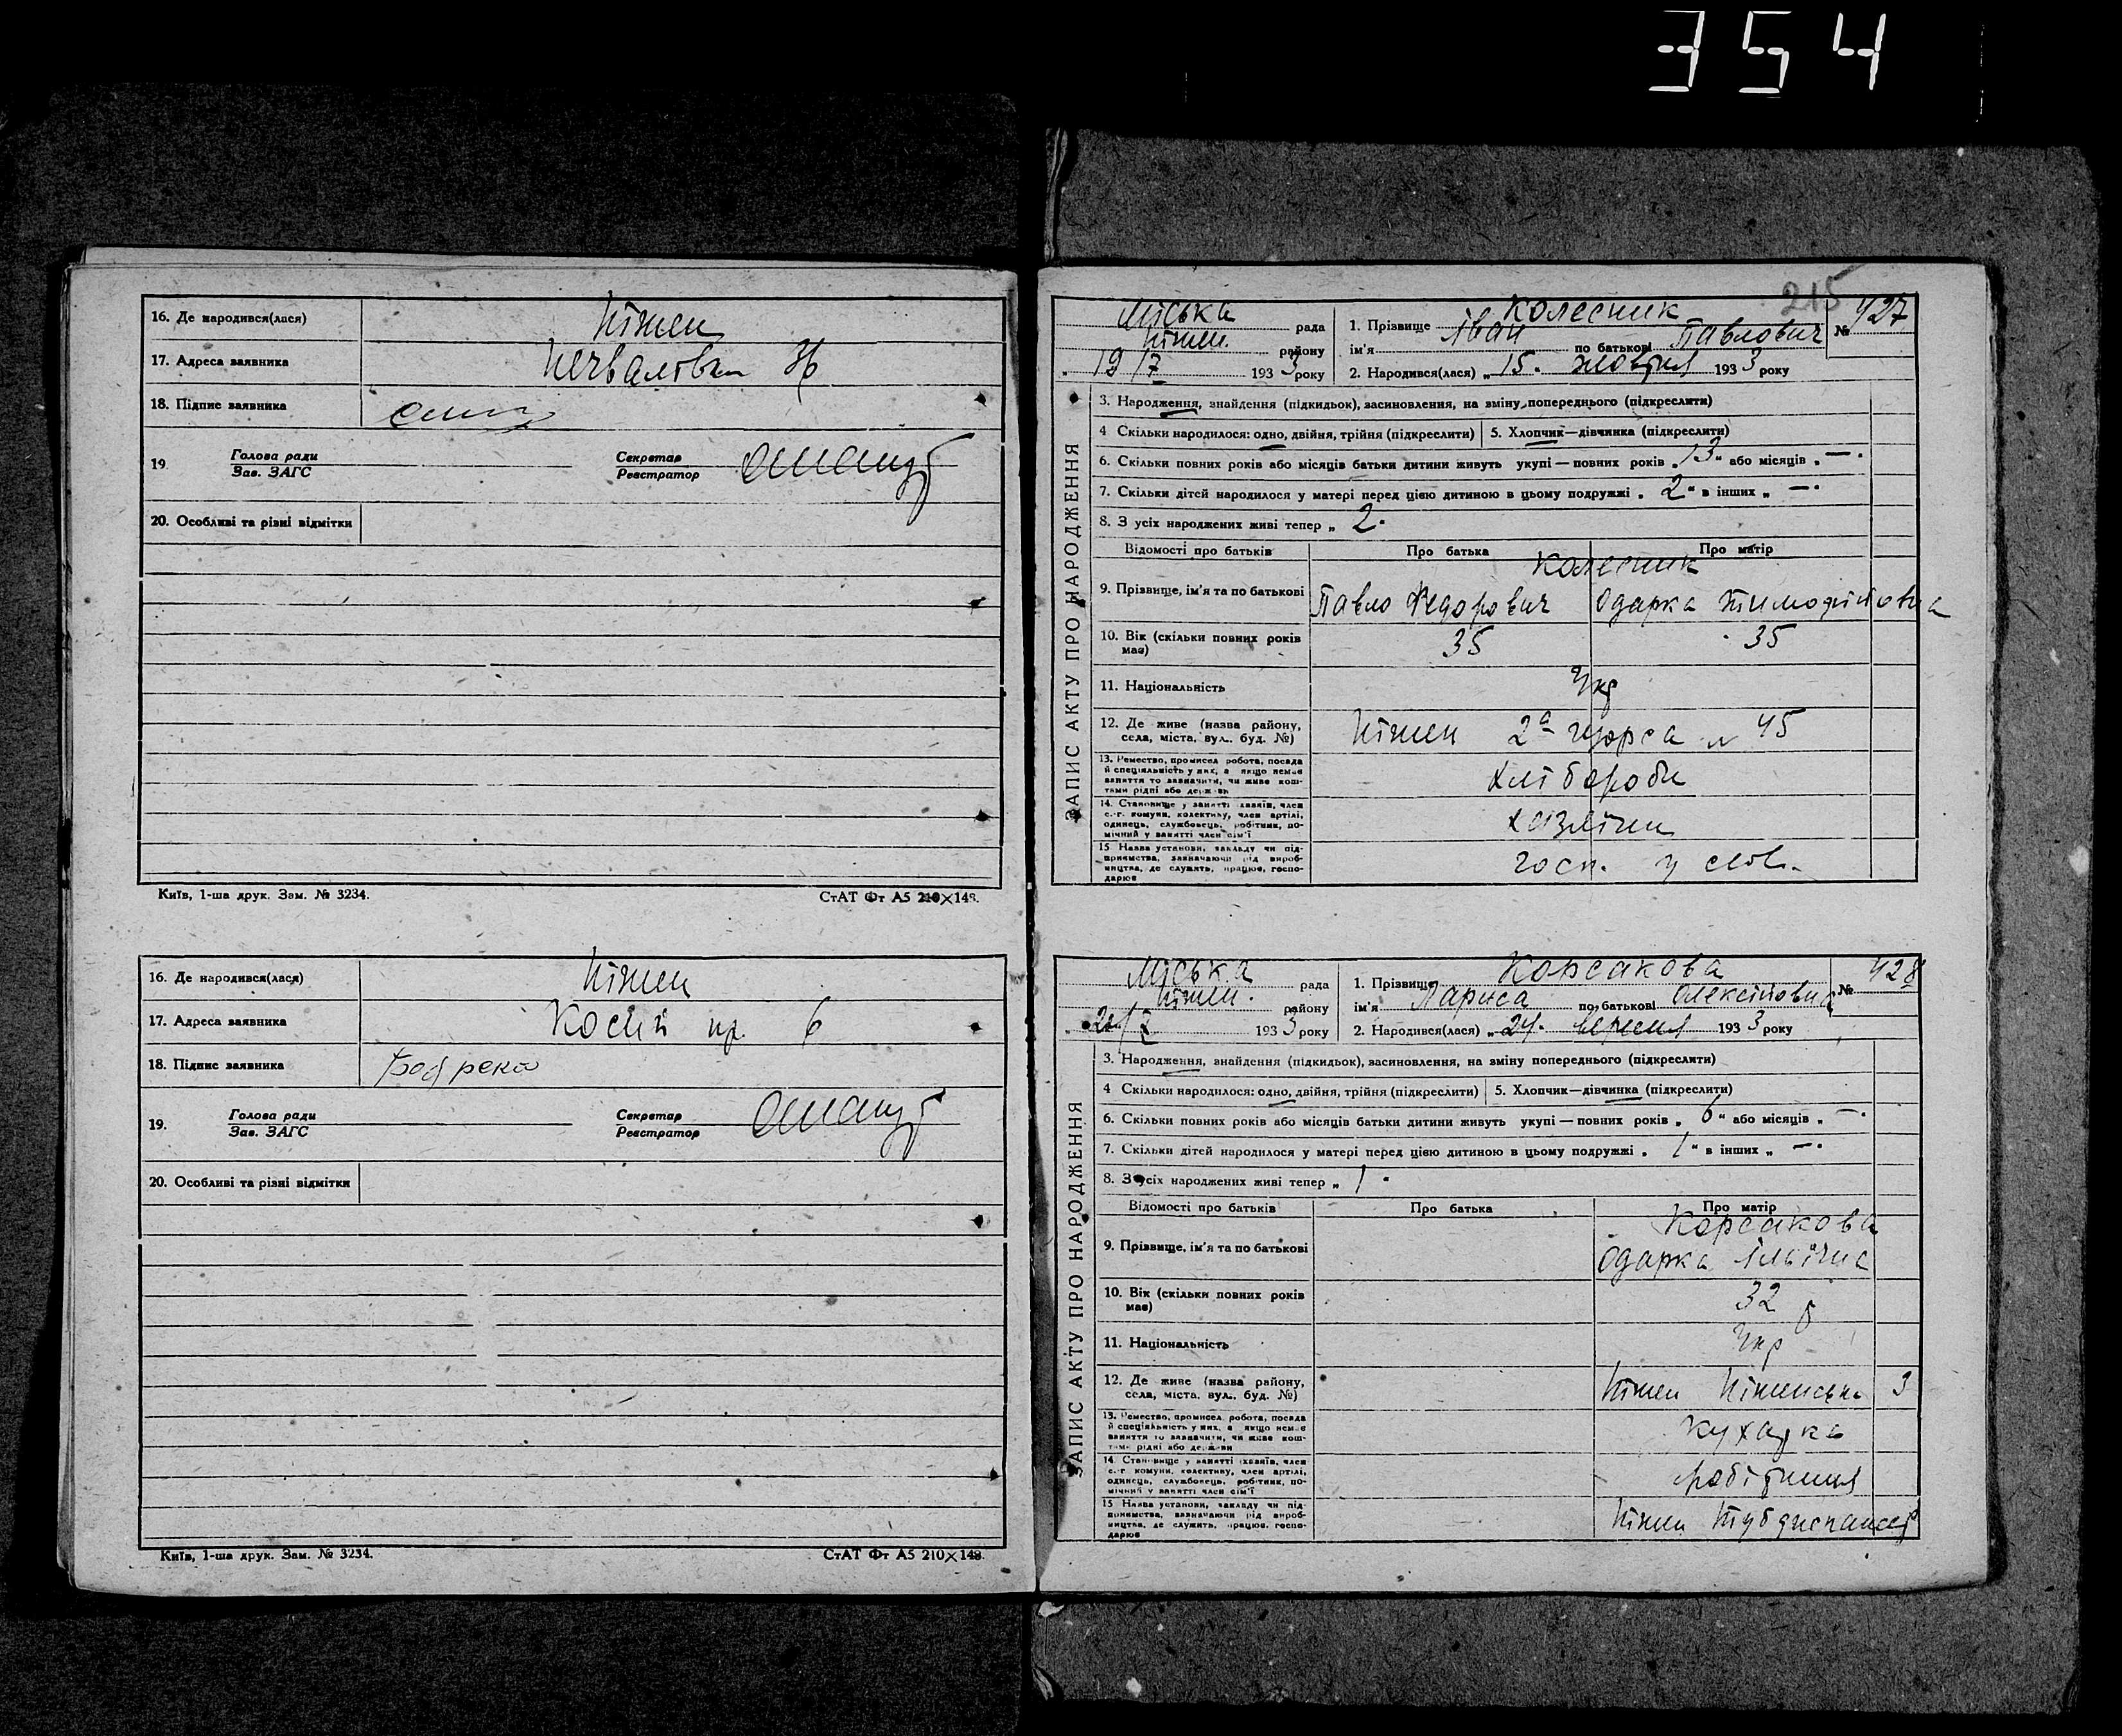 354
16. Де народився(лася) Ніжен
17. Адреса заявника 36
18. Підпис заявника
19. Голова ради Зав. ЗАГС Секретар Реєстратор
20. Особливі та різні відмітки
Київ, 1-ша друк. Зам. № 3234. СтАТ Фт А5 210×148.
16. Де народився(лася) Ніжен
17. Адреса заявника 6
18. Підпис заявника
19. Голова ради Зав. ЗАГС Секретар Реєстратор
20. Особливі та різні відмітки
Київ, 1-ша друк. Зам. № 3234. СтАТ Фт А5 210×148.
215
ЗАПИС АКТУ ПРО НАРОДЖЕННЯ
Міська рада
Ніжен. району
193 3 року
1. Прізвище Колесник № 427
ім'я Іван по батькові Павлович
2. Народився(лася) „ 15. жовтня 193 3 року
3. Народження, знайдення (підкидьок), засиновлення, на зміну попереднього (підкреслити)
4 Скільки народилося: одно, двійня, трійня (підкреслити) 5. Хлопчик—дівчинка (підкреслити)
6. Скільки повних років або місяців батьки дитини живуть укупі — повних років „ 13 " або місяців „ —.
7. Скільки дітей народилося у матері перед цією дитиною в цьому подружжі „ 2 " в інших „ —.
8. З усіх народжених живі тепер „ 2.
Відомості про батьків Про батька Про матір
Колесник
9. Прізвище, ім'я та по батькові Павло Федорович Одарка Тимофіївна
10. Вік (скільки повних років має) 35 35
11. Національність Укр
12. Де живе (назва району, села, міста, вул. буд. №) Ніжен 2а 45
13. Ремество, промисел, робота, посада й спеціяльність у них, а якщо немає заняття то зазначити, чи живе коштами рідні або держави Хлібороби
14. Становище у занятті хазяїн, член с.-г. комуни, колективу, член артілі, одинець, службовець, робітник, помічний у занятті член сім'ї хазяїни
15 Назва установи, закладу чи підприємства, зазначаючи рід виробництва, де служить, працює, господарює госп. у
ЗАПИС АКТУ ПРО НАРОДЖЕННЯ
Міська рада
Ніжен. району
193 3 року
1. Прізвище Корсакова № 428
ім'я Лариса по батькові Олексіївна
2. Народився(лася) „ 24. вересня 193 3 року
3. Народження, знайдення (підкидьок), засиновлення, на зміну попереднього (підкреслити)
4 Скільки народилося: одно, двійня, трійня (підкреслити) 5. Хлопчик—дівчинка (підкреслити)
6. Скільки повних років або місяців батьки дитини живуть укупі — повних років „ 6 " або місяців „ —.
7. Скільки дітей народилося у матері перед цією дитиною в цьому подружжі „ 1 " в інших „ —.
8. З усіх народжених живі тепер „ 1.
Відомості про батьків Про батька Про матір
Корсакова
9. Прізвище, ім'я та по батькові Одарка Іллічна
10. Вік (скільки повних років має) 32
11. Національність Укр
12. Де живе (назва району, села, міста, вул. буд. №) Ніжен Ніженська 3
13. Ремество, промисел, робота, посада й спеціяльність у них, а якщо немає заняття то зазначити, чи живе коштами рідні або держави Кухарка
14. Становище у занятті хазяїн, член с.-г. комуни, колективу, член артілі, одинець, службовець, робітник, помічний у занятті член сім'ї робітниця
15 Назва установи, закладу чи підприємства, зазначаючи рід виробництва, де служить, працює, господарює Ніжен Тубдиспансер